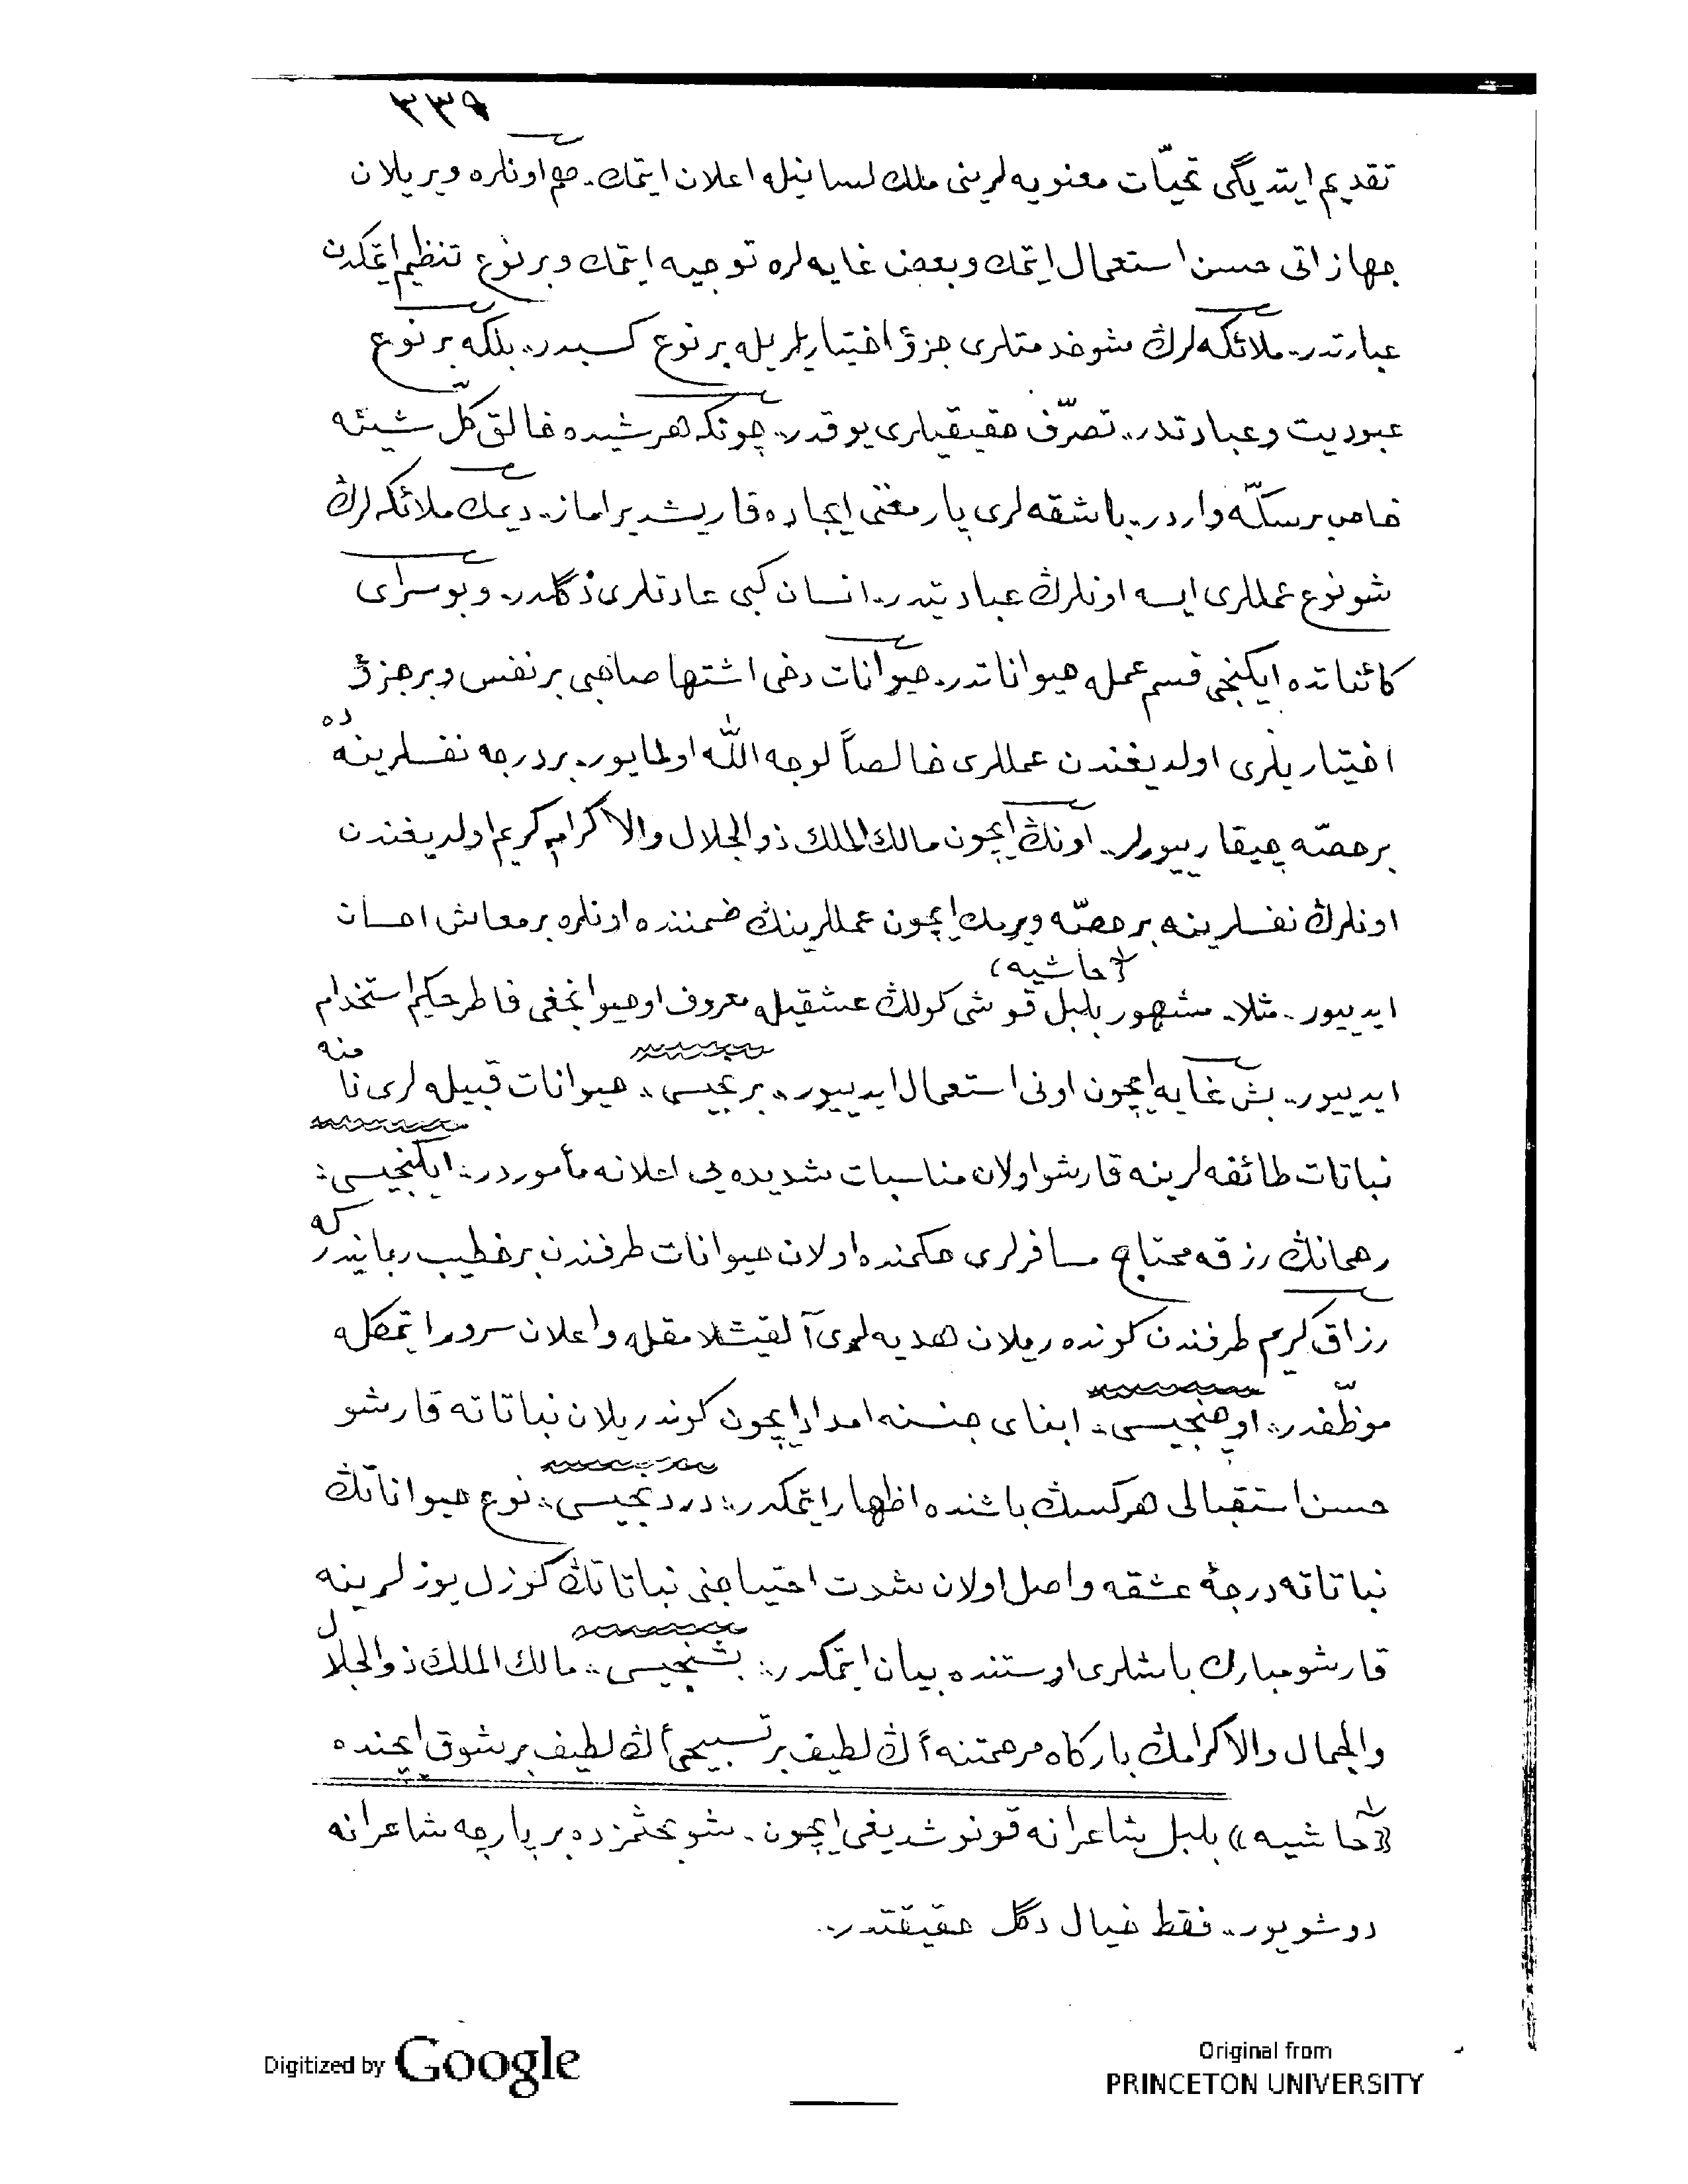 ٣٣٩
تقديم ايتديگى تحيّات معنويه‌لرينى ملك لسانيله اعلان ايتمك. هم اونلره ويريلان
جهازاتى حسن استعمال ايتمك وبعض غايه‌لره توجيه ايتمك وبر نوع تنظيم ايتمكدن
عبارتدر. ملائكه‌لرڭ شو خدمتلرى جزؤ اختياريلريله بر نوع كسبدر. بلكه بر نوع
عبوديت وعبادتدر. تصرّف حقيقيلرى يوقدر. چونكه هر شيده خالق كلّ شيئه
خاص بر سكّه واردر. باشقه‌لرى پارمغنى ايجاده قاريشديراماز. ديمك ملائكه‌لرڭ
شو نوع عمللرى ايسه اونلرڭ عبادتيدر. انسان كبى عادتلرى دگلدر. و بو سراى
كائناتده ايكنجى قسم عمله حيواناتدر. حيوانات دخى اشتها صاحبى بر نفس و بر جزؤ
اختياريلرى اولديغندن عمللرى خالصاً لوجه الله اولمايور. بر درجه نفسلرينه ده
بر حصّه چيقارييورلر. اونڭ ايچون مالك الملك ذو الجلال والاكرام كريم اولديغندن
اونلرڭ نفسلرينه بر حصّه ويرمك ايچون عمللرينڭ ضمننده اونلره بر معاش احسان
(حاشيه)
ايدييور. مثلا. مشهور بلبل قوشى كولڭ عشقيله معروف او حيوانجغى فاطر حكيم استخدام
ايدييور. بش غايه ايچون اونى استعمال ايدييور. برنجيسى: حيوانات قبيله‌لرى نامنه
نباتات طائفه‌لرينه قارشو اولان مناسبات شديده‌يى اعلانه مأموردر: ايكنجيسى:
رحمانڭ رزقه محتاج مسافرلرى حكمنده اولان حيوانات طرفندن بر خطيب ربانيدركه
رزاق كريم طرفندن كوندريلان هديه‌لرى آلقيشلامقله واعلان سرور ايتمكله
موظّفدر: اوچنجيسى: ابناى جنسنه امداد ايچون كوندريلان نباتاته قارشو
حسن استقبالى هركسڭ باشنده اظهار ايتمكدر: دردنجيسى: نوع حيواناتڭ
نباتاته درجۀ عشقه واصل اولان شدت احتياجنى نباتاتڭ كوزل يوزلرينه
قارشو مبارك باشلرى اوستنده بيان ايتمكدر: بشنجيسى: مالك الملك ذو الجلال
والجمال والاكرامڭ باركاه مرحمتنه اڭ لطيف بر تسبيحى اڭ لطيف بر شوق ايچنده
(حاشيه) بلبل شاعرانه قونوشديغى ايچون. شو بحثمزده بر پارچه شاعرانه
دوشويور. فقط خيال دگل حقيقتدر.
Digitized by Google
Original from
PRINCETON UNIVERSITY